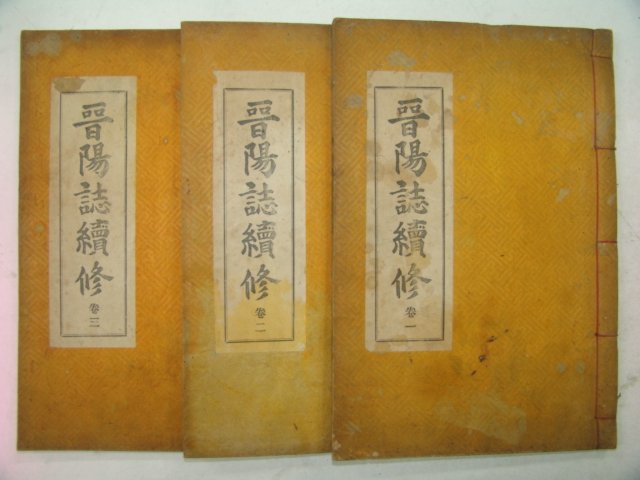 晋陽誌續修 卷一
晋陽誌續修 卷二
晋陽誌續修 卷三